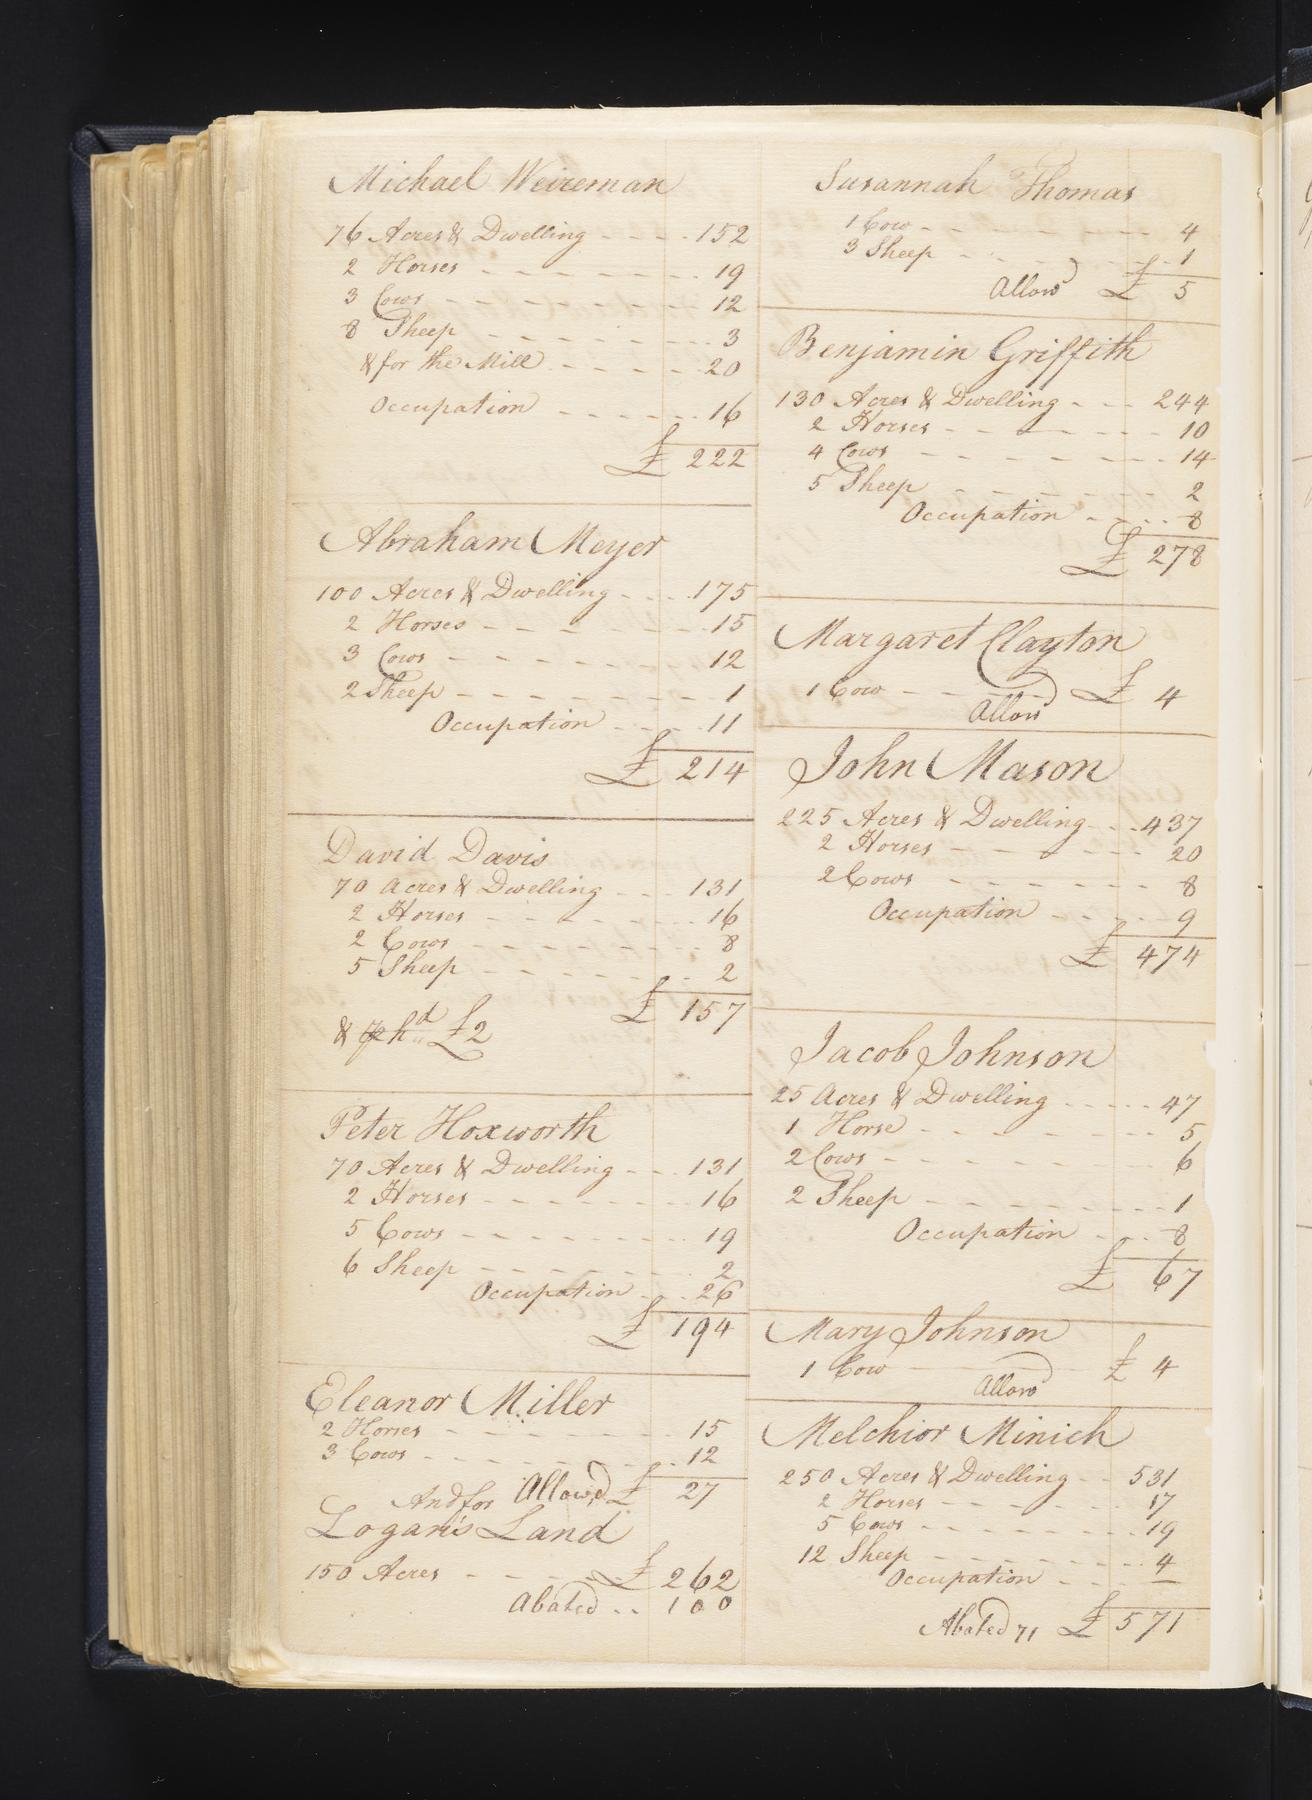 Michael Weireman
76 Acres & Dwelling - - - - 152
2 Horses - - - - - - - 19
3 Cows - - - - - - - 12
8 Sheep - - - - - - - 3
& for the Mill - - - - - 20
Occupation - - - - - 16
£ 222
Abraham Meyer
100 Acres & Dwelling - - - 175
2 Horses - - - - - - 15
3 Cows - - - - - - 12
2 Sheep - - - - - - - 1
Occupation - - - 11
£ 214
David Davis
70 Acres & Dwelling - - - 131
2 Horses - - - - - - 16
2 Cows - - - - - - 8
5 Sheep - - - - - - 2
£ 157
& £2
Peter Hoxworth
70 Acres & Dwelling - - - 131
2 Horses - - - - - - 16
5 Cows - - - - - - - 19
6 Sheep - - - - - - 2
Occupation - - 26
£ 194
Eleanor Miller
2 Horses - - - - - - 15
3 Cows - - - - - - 12
Allowd £ 27
And for
Logan's Land
150 Acres - - - - £ 262
Abated - - 100
Susannah Thomas
1 Cow - - - - - - - 4
3 Sheep - - - - - - 1
Allowd £ 5
Benjamin Griffith
130 Acres & Dwelling - - - 244
2 Horses - - - - - - 10
4 Cows - - - - - - - 14
5 Sheep - - - - - - 2
Occupation - - - - 8
£ 278
Margaret Clayton
1 Cow - - - - £ 4
Allowd
John Mason
225 Acres & Dwelling - - - 437
2 Horses - - - - - - 20
2 Cows - - - - - - 8
Occupation - - - - 9
£ 474
Jacob Johnson
25 Acres & Dwelling - - - - 47
1 Horse - - - - - - 5
2 Cows - - - - - - 6
2 Sheep - - - - - - 1
Occupation - - 8
£ 67
Mary Johnson
1 Cow - - - - £ 4
Allowd
Melchior Minich
250 Acres & Dwelling - - 531
2 Horses - - - - - 17
5 Cows - - - - - - 19
12 Sheep - - - - - 4
Occupation - - - —
Abated 71 £ 571